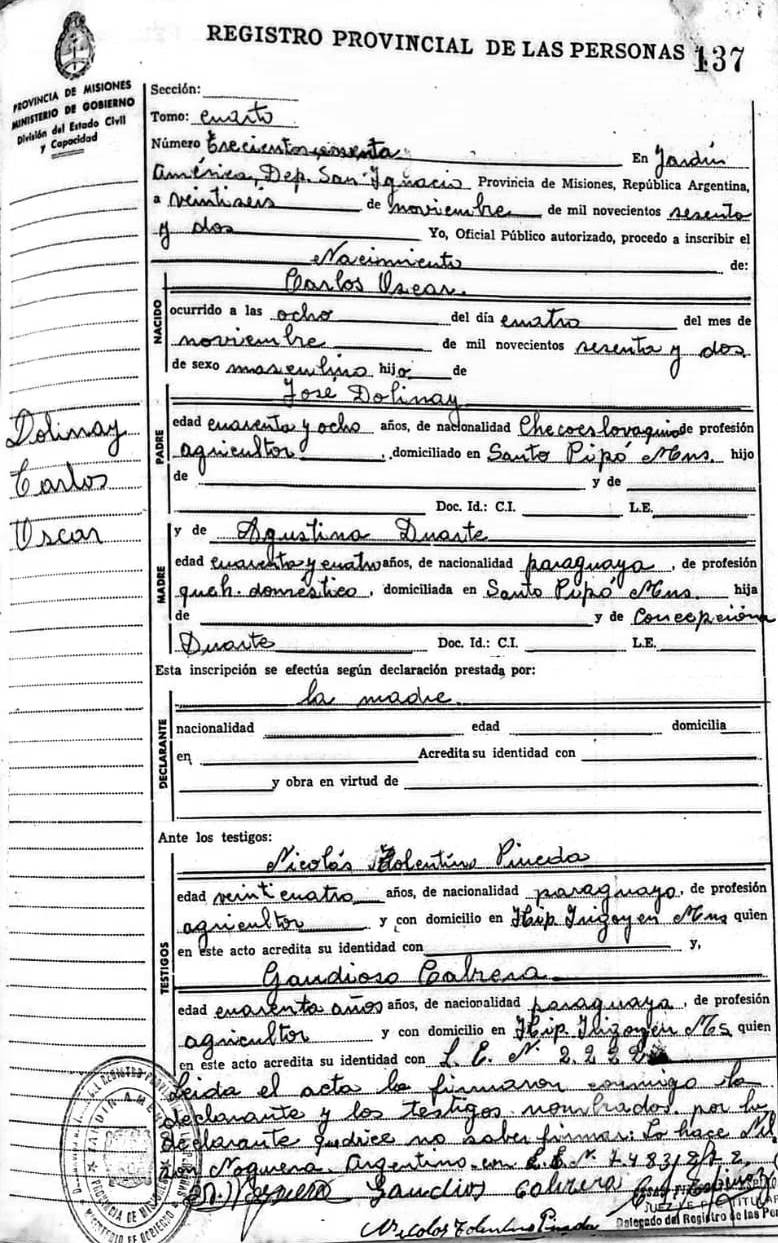 REGISTRO PROVINCIAL DE LAS PERSONAS 137
PROVINCIA DE MISIONES
MINISTERIO DE GOBIERNO
División del Estado Civil
y Capacidad
Sección:
Tomo: cuarto
Número trecientos sesenta En Jardín
América, Dep. San Ignacio Provincia de Misiones, República Argentina,
a veintiseis de noviembre de mil novecientos sesenta
y dos Yo, Oficial Público autorizado, procedo a inscribir el
Nacimiento de:
Carlos Oscar.
NACIDO
ocurrido a las ocho del día cuatro del mes de
noviembre de mil novecientos sesenta y dos
de sexo masculino hijo de
José Dolinay
Dolinay
Carlos
Oscar
PADRE
edad cuarenta y ocho años, de nacionalidad Checoeslovaquio de profesión
agricultor, domiciliado en Santo Pipó Mns. hijo
de y de
Doc. Id.: C.I. L.E.
MADRE
y de Agustina Duarte
edad cuarenta y cuatro años, de nacionalidad paraguaya, de profesión
queh. domestico, domiciliada en Santo Pipó Mns. hija
de y de Concepciona
Duarte Doc. Id.: C.I. L.E.
Esta inscripción se efectúa según declaración prestada por:
la madre.
DECLARANTE
nacionalidad edad domicilia
en Acredita su identidad con
y obra en virtud de
Ante los testigos:
Nicolás Tolentino Pineda
TESTIGOS
edad veinticuatro años, de nacionalidad paraguayo, de profesión
agricultor y con domicilio en Hip. Irigoyen Mns quien
en este acto acredita su identidad con y,
Gaudioso Cabrera
edad cuarenta años años, de nacionalidad paraguaya, de profesión
agricultor y con domicilio en Hip. Irigoyen Ms quien
en este acto acredita su identidad con L. E. Nº 2.222
Leida el acta la firmaron conmigo la
declarante y los testigos nombrados. por la
declarante que dice no saber firmar: Lo hace
Noguera Argentino con L.E.Nº 7.483.872,
Noguera Gaudios Cabrera
Nicolos Tolentino Pineda
JUEZ DE TITULAR
Delegado del Registro de las Per
JARDIN AMERICA
PROVINCIA DE MISIONES
MINISTERIO DE GOBIERNO